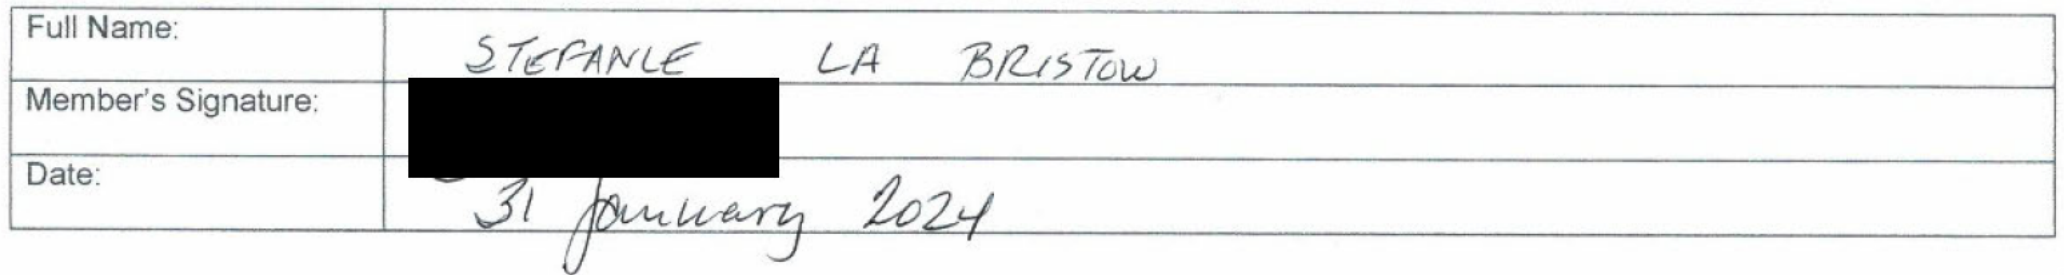 Full Name: STEFANIE LA BRISTOW
Member's Signature:
Date: 31 January 2024